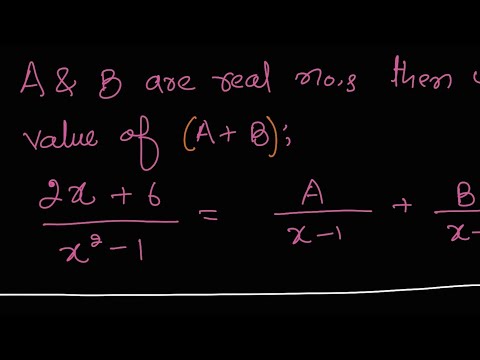 A & B are real no.s then
value of (A + B);
(2x + 6)/(x² - 1) = A/(x - 1) + B/(x -